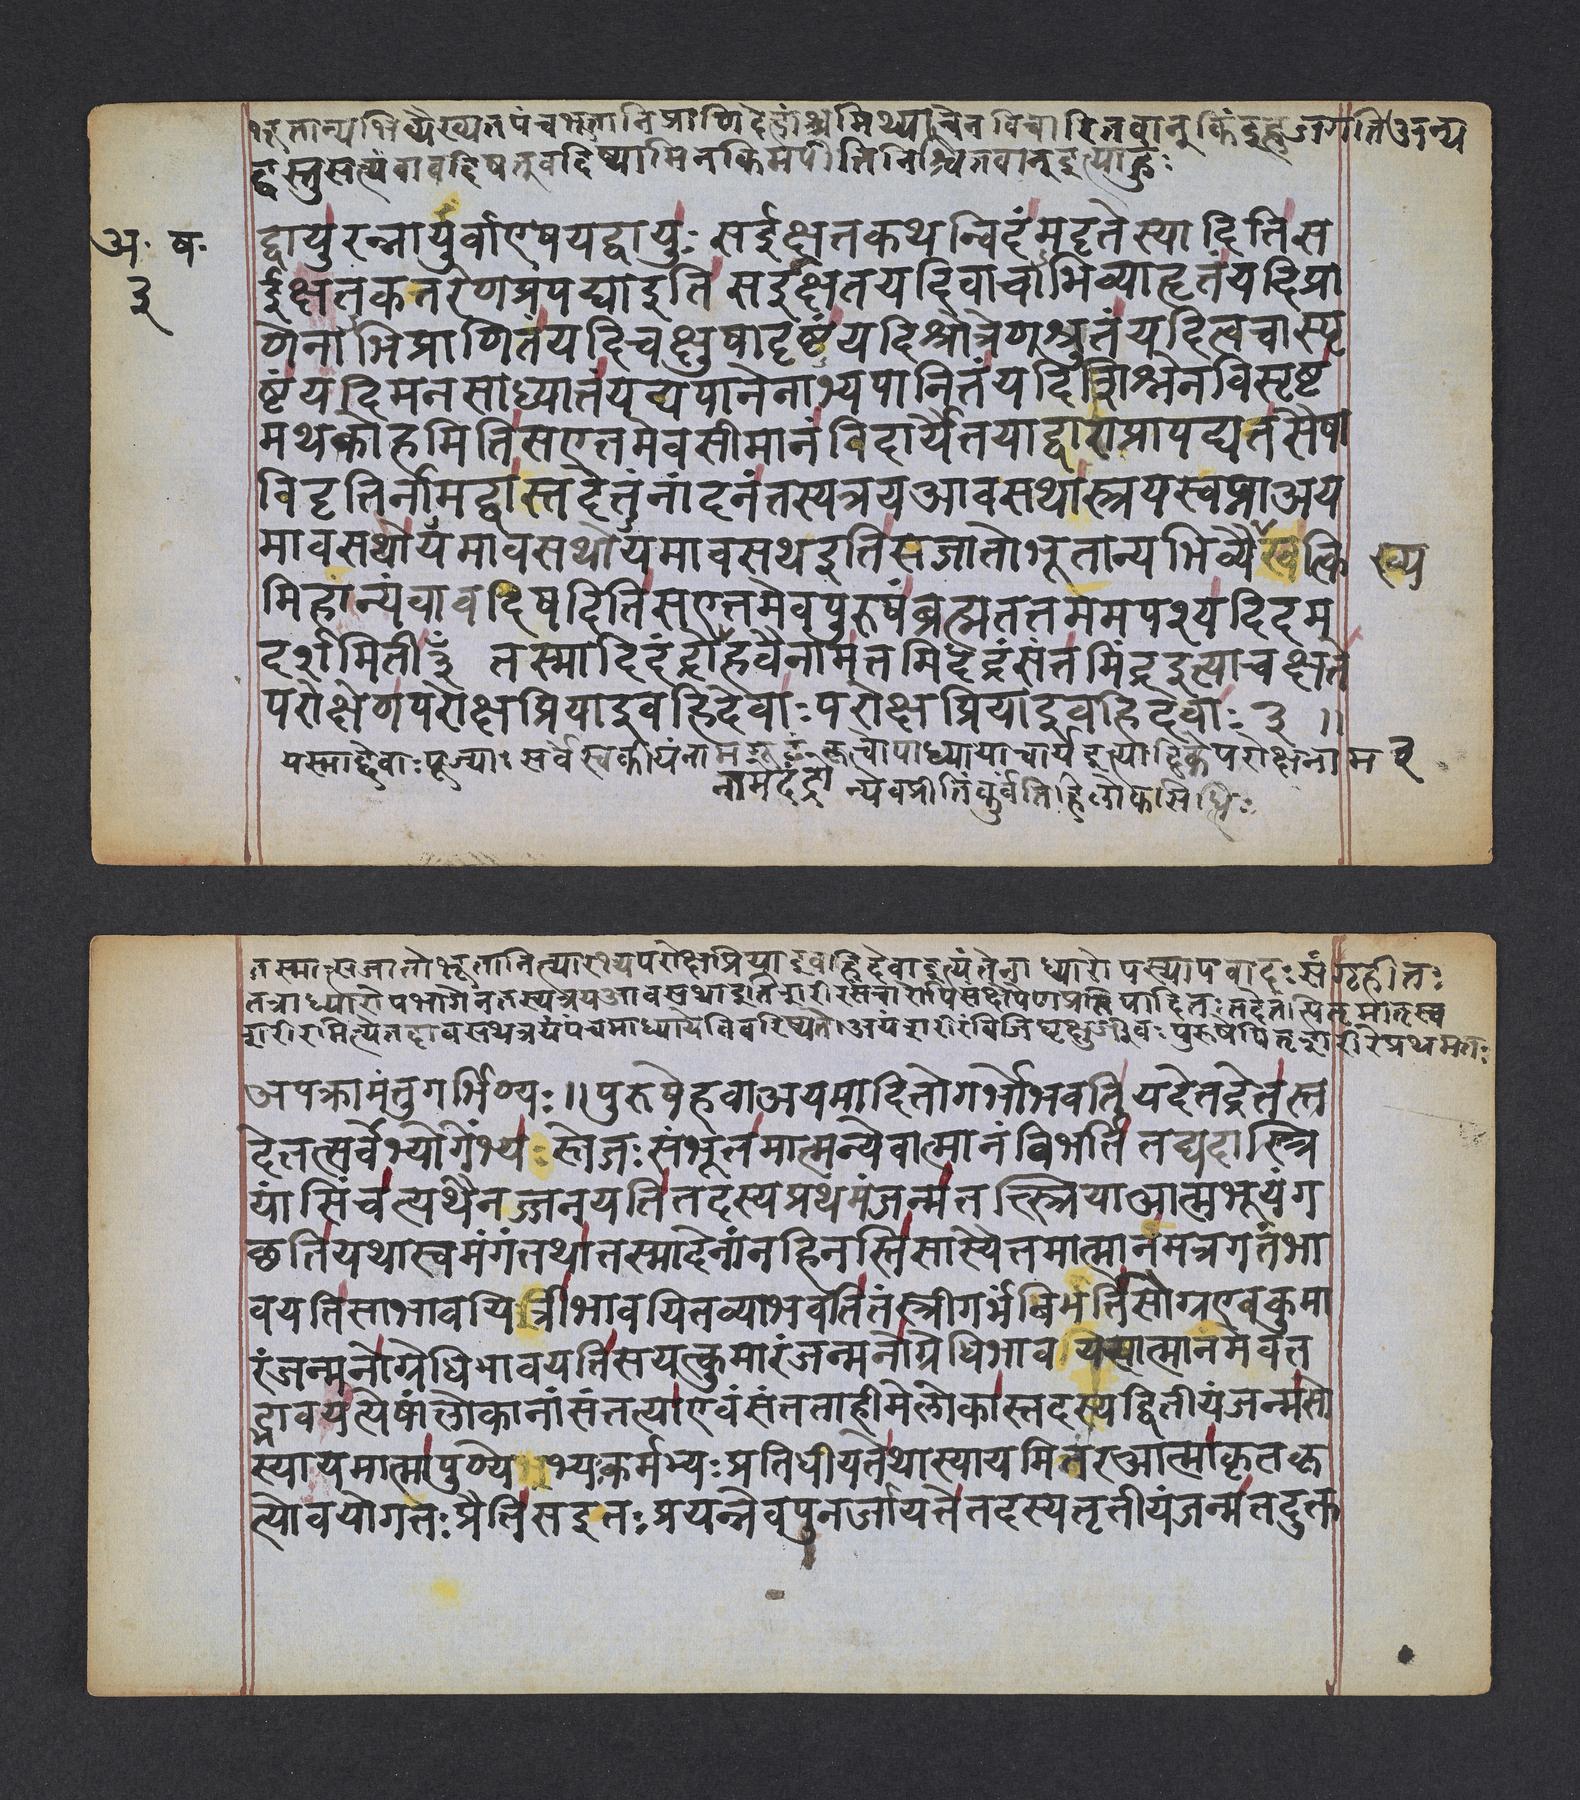 भूतान्यभिव्यैख्यत पंचभूतानि प्राणिदेहांश्च मिथ्यात्वेन विचारितवान् किं इह जगति अन्य
द्वस्तु सत्यं वावदिषत् वदिष्यामि न किमपीति निश्चितवान् इत्याहुः
द्वायुरन्नायुर्वाएषयद्वायुः सईक्षतकथंन्विदंमदृतेस्यादितिस
अ॰ ष॰
ईक्षतकतरेणप्रपद्याइति सईक्षतयदिवाचाभिव्याहृतंयदिप्रा
३
णेनाभिप्राणितंयदिचक्षुषादृष्टंयदिश्रोत्रेणश्रुतंयदित्वचास्पृ
ष्टंयदिमनसाध्यातंयद्यपानेनाभ्यपानितंयदिशिश्नेनविसृष्ट
मथकोहमितिसएतमेवसीमानंविदार्यैतयाद्वाराप्रापद्यतसैषा
विदृतिर्नामद्वास्तदेतन्नांदनंतस्यत्रयआवसथास्त्रयस्वप्नाअय
मावसथोयमावसथोयमावसथइतिसजातोभूतान्यभिव्यैखत्कि ख्य
मिहान्यंवावदिषदितिसएतमेवपुरुषंब्रह्मततममपश्यदिदम
दर्शमिती३ँ तस्मादिदंद्रोहवैनामतमिदंद्रंसंतमिंद्रइत्याचक्षते
परोक्षेणपरोक्षप्रियाइवहिदेवाःपरोक्षप्रियाइवहिदेवाः ३ ॥
यस्माद्देवाः पूज्याः सर्वे स्वकीयंनाम त्वोपाध्यायाचार्य इत्यादिके परोक्षनाम ३
न्येवप्रीतिं कुर्वंति हि लोकप्रसिद्धिः
तस्मात्सजातोभूतानित्यारभ्यपरोक्षप्रियाइवहिदेवाइत्यंतेनाध्यारोपस्यापवादः संगृहीतः
तत्राध्यारोपभागेनतस्यत्रयआवसथाइतिशरीरसंचारोपिसंक्षेपेणप्रतिपादितः तदेतत्पितृमातृस्व
शरीरमित्येतदावसथत्रयंपंचमाध्यायेविवरिष्यते अयंशरीरंविजिघृक्षुर्जीवः पुरुषेपितृशरीरेप्रथमतः
अपक्रामंतुगर्भिण्यः॥पुरुषेहवाअयमादितोगर्भोभवतियदेतद्रेतस्त
देतत्सर्वेभ्योगेंभ्यःस्तेजःसंभूतमात्मन्येवात्मानंबिभर्तितद्यदास्त्रि
यांसिंचत्यथैनज्जनयतितदस्यप्रथमंजन्मतत्स्त्रियाआत्मभूयंग
च्छतियथास्वमंगंतथातस्मादेनांनहिनस्तिसास्यैतमात्मानमत्रगतंभा
वयतिसाभावयित्रीभावयितव्याभवतितंस्त्रीगर्भंबिभर्तिसोग्रएवकुमा
रंजन्मनोग्रेधिभावयतिसयत्कुमारंजन्मनोग्रेधिभावयत्यात्मानमेवत
द्भावयत्येषांलोकानांसंतत्याएवंसंतताहीमेलोकास्तदस्यद्वितीयंजन्मसो
स्यायमात्मापुण्येभ्यःकर्मभ्यःप्रतिधीयतेथास्यायमितरआत्माकृतकृ
त्योवयोगतःप्रैतिसइतःप्रयन्नेवपुनर्जायतेतदस्यतृतीयंजन्मतदुक्त